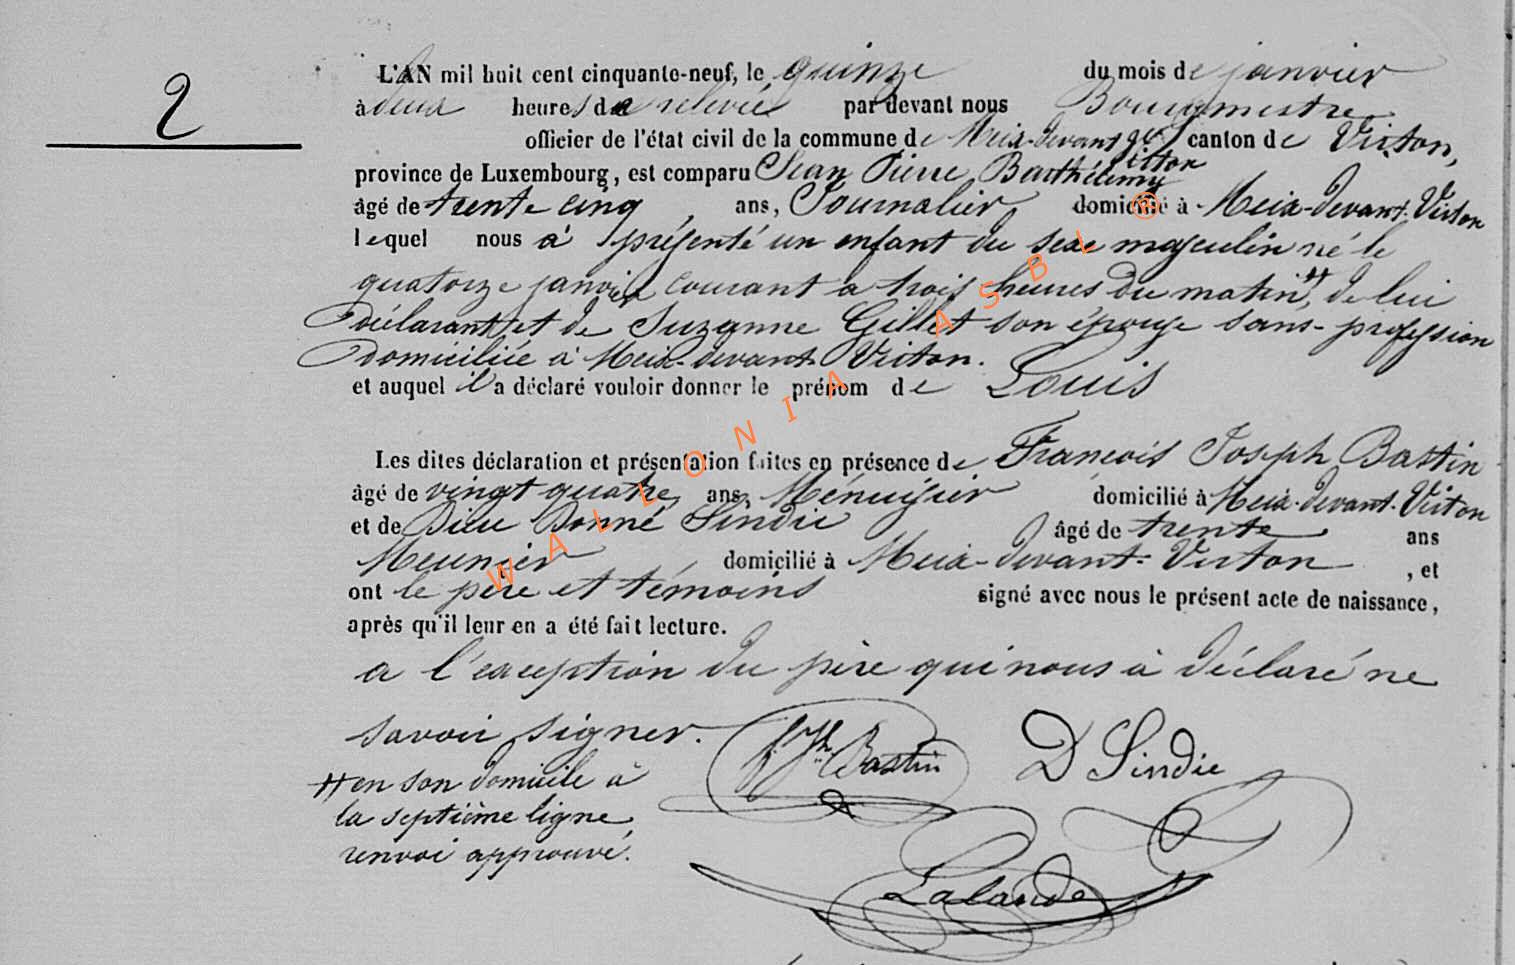 2
L'AN mil huit cent cinquante-neuf, le quinze du mois de janvier
à deux heures de relevée par devant nous Bourgmestre
officier de l'état civil de la commune de Meix-devant Virton canton de Virton,
province de Luxembourg, est comparu Jean Pierre Barthélemy
âgé de trente cinq ans, Journalier domicilié à Meix-devant-Virton
lequel nous a présenté un enfant du sexe masculin né le
quatorze janvier courant à trois heures du matin, # de lui
déclarant et de Suzanne Gillet son épouse sans-profession
domiciliée à Meix-devant Virton.
et auquel il a déclaré vouloir donner le prénom de Louis
Les dites déclaration et présentation faites en présence de Francois Joseph Bastin
âgé de vingt quatre ans, Ménuisier domicilié à Meix-devant-Virton
et de Dieu Donné Sindic âgé de trente ans
Meunier domicilié à Meix-devant-Virton, et
ont le père et témoins signé avec nous le présent acte de naissance,
après qu'il leur en a été fait lecture.
a l'exception du père qui nous à déclaré ne
savoir signer.
# en son domicile à
la septième ligne
renvoi approuvé.
Bastin
D Sindic
Lalande
WALLONIA ASBL ®